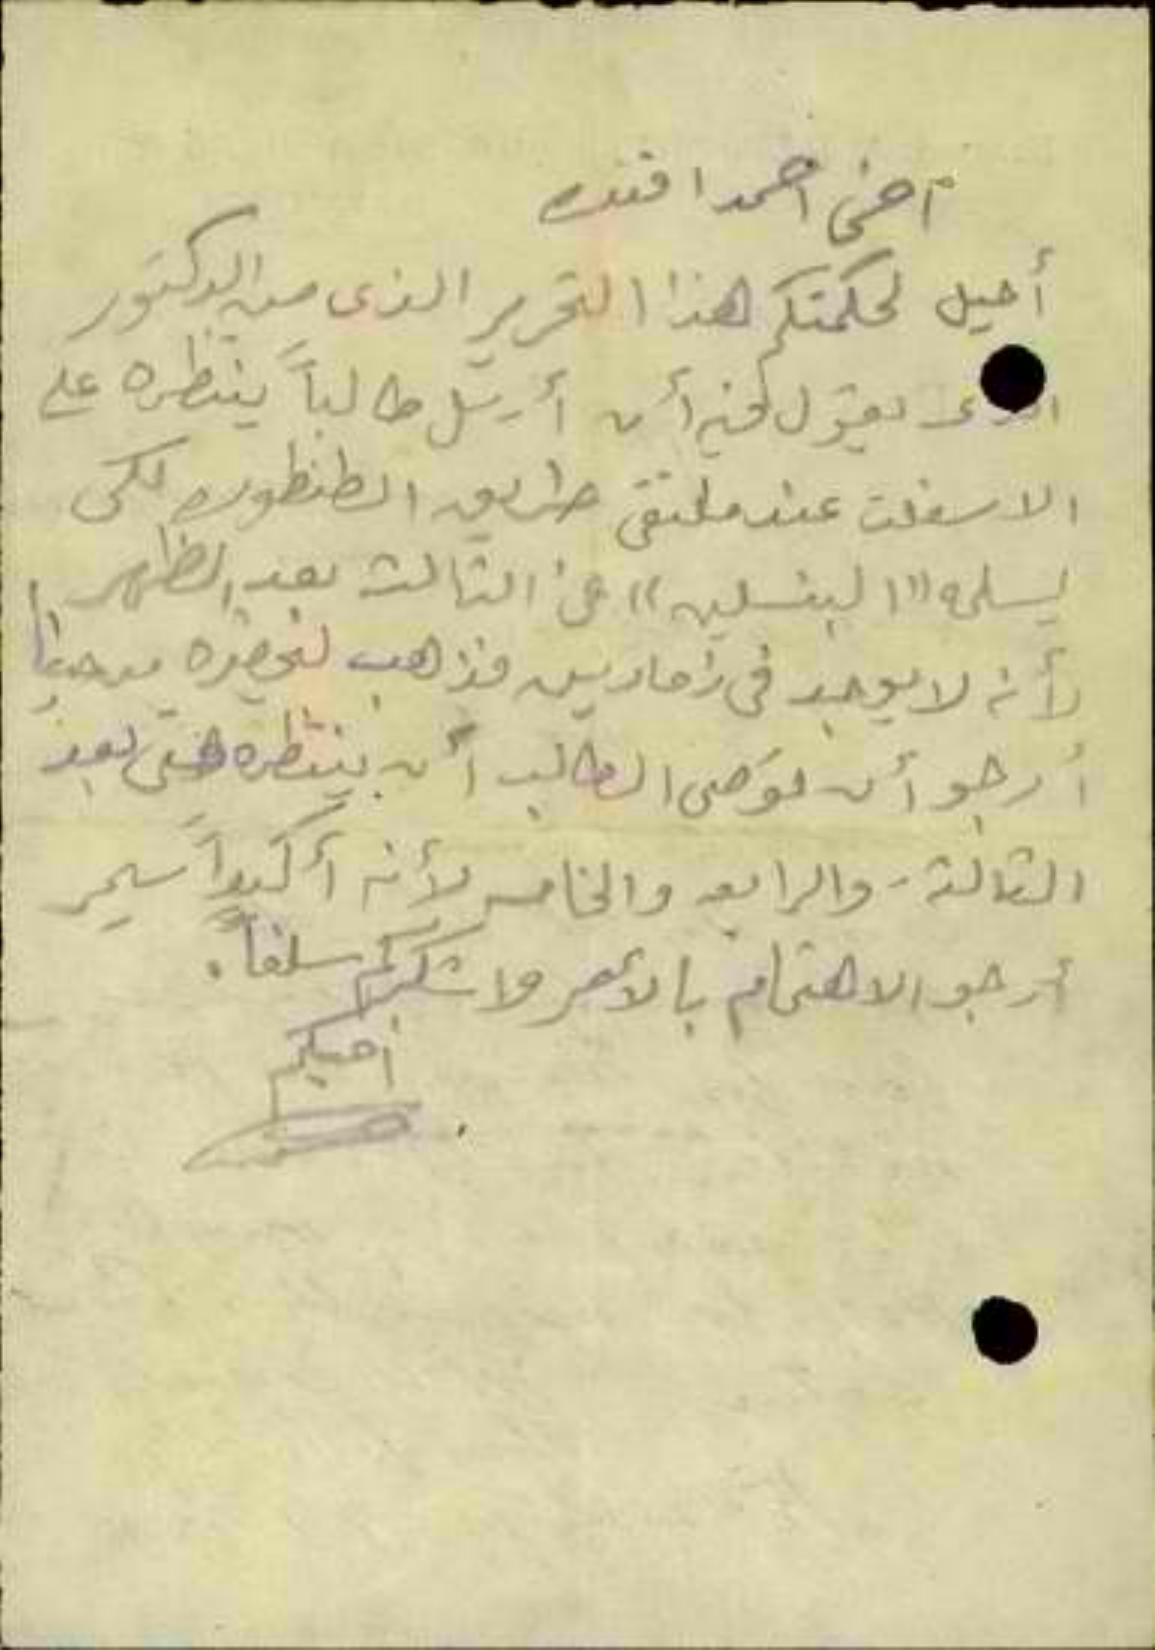 أخي احمد افندي
أحيل لحكمتكم هذا التحرير الذي من الدكتور
الذي يقول فيه أن أرسل طالباً ينتظره على
الاسفلت عند ملتقى طريق الطنطوره لكي
يسلمه "البنسلين" في الثالثة بعد الظهر
لأنه لا يوجد في زمارين فذهب لتحضيره من حيفا
أرجو أن توصي الطالب أن ينتظره حتى بعد
الثالثة - والرابعه والخامسه لأنه أكيداً سيمر
أرجو الاهتمام بالأمر ولاشكركم سلفاً.
أخيكم